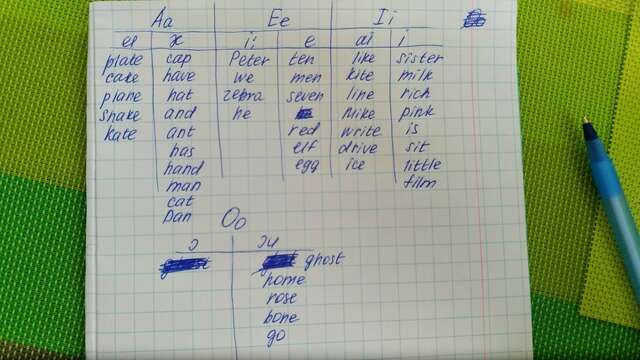 Aa Ee Ii
ei æ i: e ai i
plate cap Peter ten like sister
cake have we men kite milk
plane hat zebra seven line rich
snake and he Mike pink
kate ant red write is
has elf drive sit
hand egg ice little
man film
cat
Dan
Oo
ɔ ɔu
ghost
home
rose
bone
go